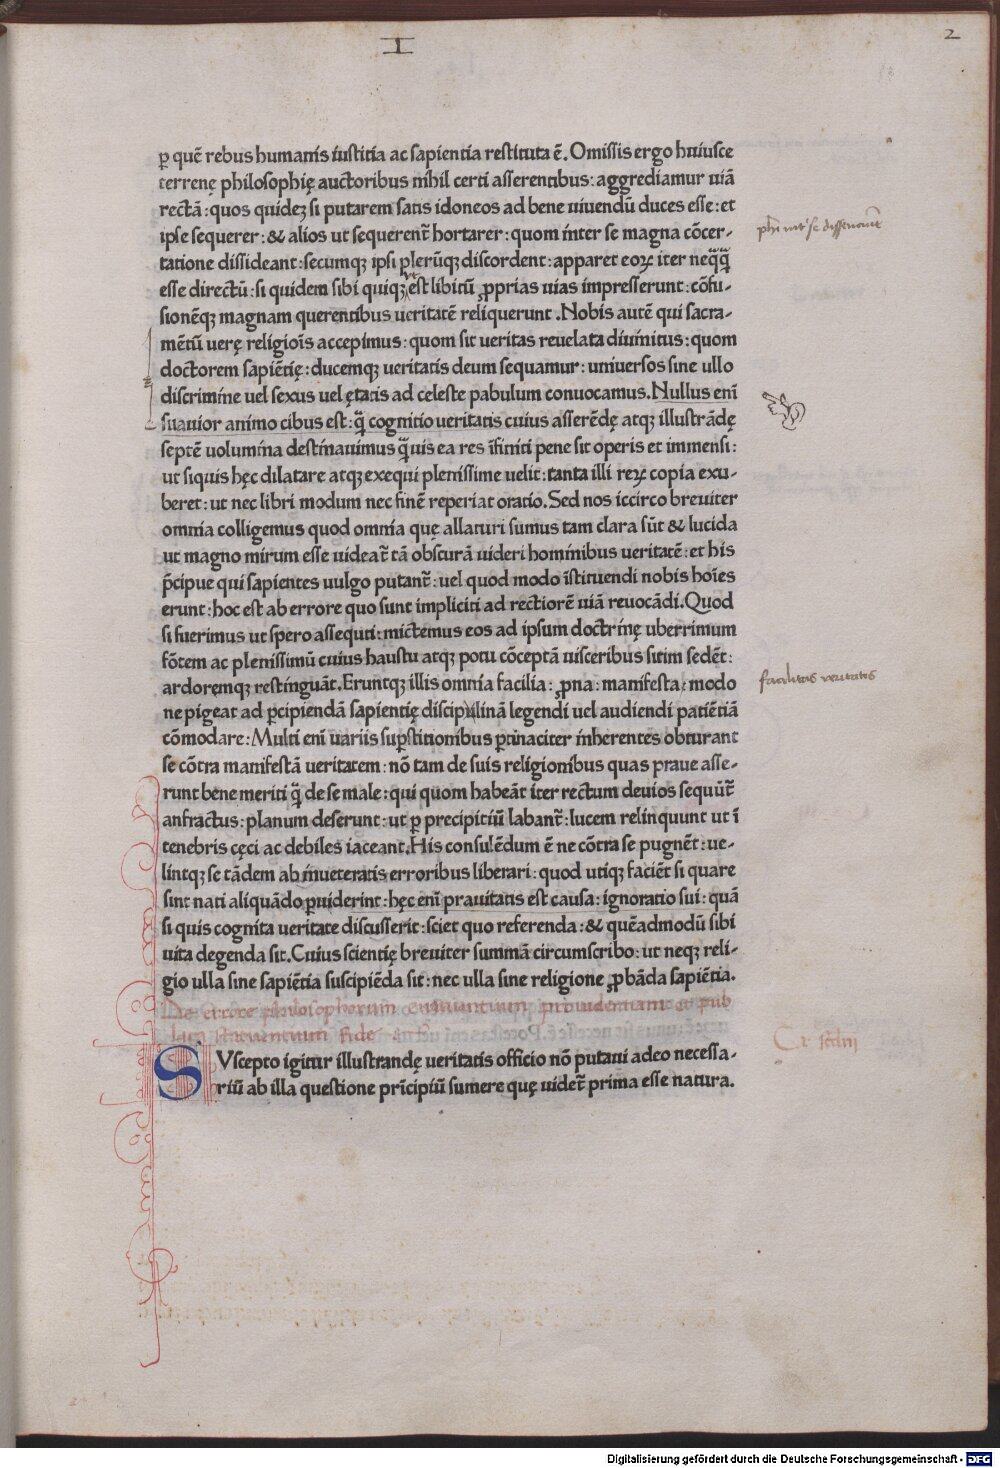 I
2
ꝑ quē rebus humanis iustitia ac sapientia restituta ē. Omissis ergo huiusce
terrenę philosophię auctoribus nihil certi asserentibus: aggrediamur uiā
rectā: quos quideʒ si putarem satis idoneos ad bene uiuendū duces esse: et
ipse sequerer: & alios ut sequerent̄ hortarer: quom inter se magna cōcer-
tatione dissideant: secumqʒ ipsi plerūqʒ discordent: apparet eoꝝ iter neq̄q̄
esse directū: si quidem sibi quiqʒ ut est libitū ꝓprias uias impresserunt: cōfu-
sionēqʒ magnam querentibus ueritatē reliquerunt. Nobis autē qui sacra-
mētū uerę religiōis accepimus: quom sit ueritas reuelata diuinitus: quom
doctorem sapiētię: ducemqʒ ueritatis deum sequamur: uniuersos sine ullo
discrimine uel sexus uel ętatis ad celeste pabulum conuocamus. Nullus enī
suauior animo cibus est: q̄ cognitio ueritatis cuius asserēdę atqʒ illustrādę
septē uolumina destinauimus q̄uis ea res īfiniti pene sit operis et immensi:
ut siquis hęc dilatare atqʒ exequi plenissime uelit: tanta illi reꝝ copia exu-
beret: ut nec libri modum nec finē reperiat oratio. Sed nos iccirco breuiter
omnia colligemus quod omnia quę allaturi sumus tam clara sūt & lucida
ut magno mirum esse uideat̄ tā obscurā uideri hominibus ueritatē: et his
p̄cipue qui sapientes uulgo putant̄: uel quod modo īstituendi nobis hoīes
erunt: hoc est ab errore quo sunt impliciti ad rectiorē uiā reuocādi. Quod
si fuerimus ut spero assequti: mictemus eos ad ipsum doctrinę uberrimum
fōtem ac plenissimū cuius haustu atqʒ potu cōceptā uisceribus sitim sedēt:
ardoremqʒ restinguāt. Eruntqʒ illis omnia facilia: ꝓna: manifesta: modo
ne pigeat ad ꝑcipiendā sapientię disciplinā legendi uel audiendi patiētiā
cōmodare: Multi enī uariis suꝑstitionibus ꝑtinaciter inherentes obturant
se cōtra manifestā ueritatem: nō tam de suis religionibus quas praue asse-
runt bene meriti q̄ de se male: qui quom habeāt iter rectum deuios sequūt̄
anfractus: planum deserunt: ut ꝑ precipitiū labant̄: lucem relinquunt ut ī
tenebris cęci ac debiles iaceant. His consulēdum ē ne cōtra se pugnēt: ue-
lintqʒ se tādem ab inueteratis erroribus liberari: quod utiqʒ faciēt si quare
sint nati aliquādo ꝑuiderint: hęc enī prauitatis est causa: ignoratio sui: quā
si quis cognita ueritate discusserit: sciet quo referenda: & quēadmodū sibi
uita degenda sit. Cuius scientię breuiter summā circumscribo: ut neqʒ reli-
gio ulla sine sapiētia suscipiēda sit: nec ulla sine religione ꝓbāda sapiētia.
De errore philosophorum
SVscepto igitur illustrandę ueritatis officio nō putaui adeo necessa-
riū ab illa questione prīcipiū sumere quę uidet̄ prima esse natura.
facilitas veritatis
Digitalisierung gefördert durch die Deutsche Forschungsgemeinschaft - DFG